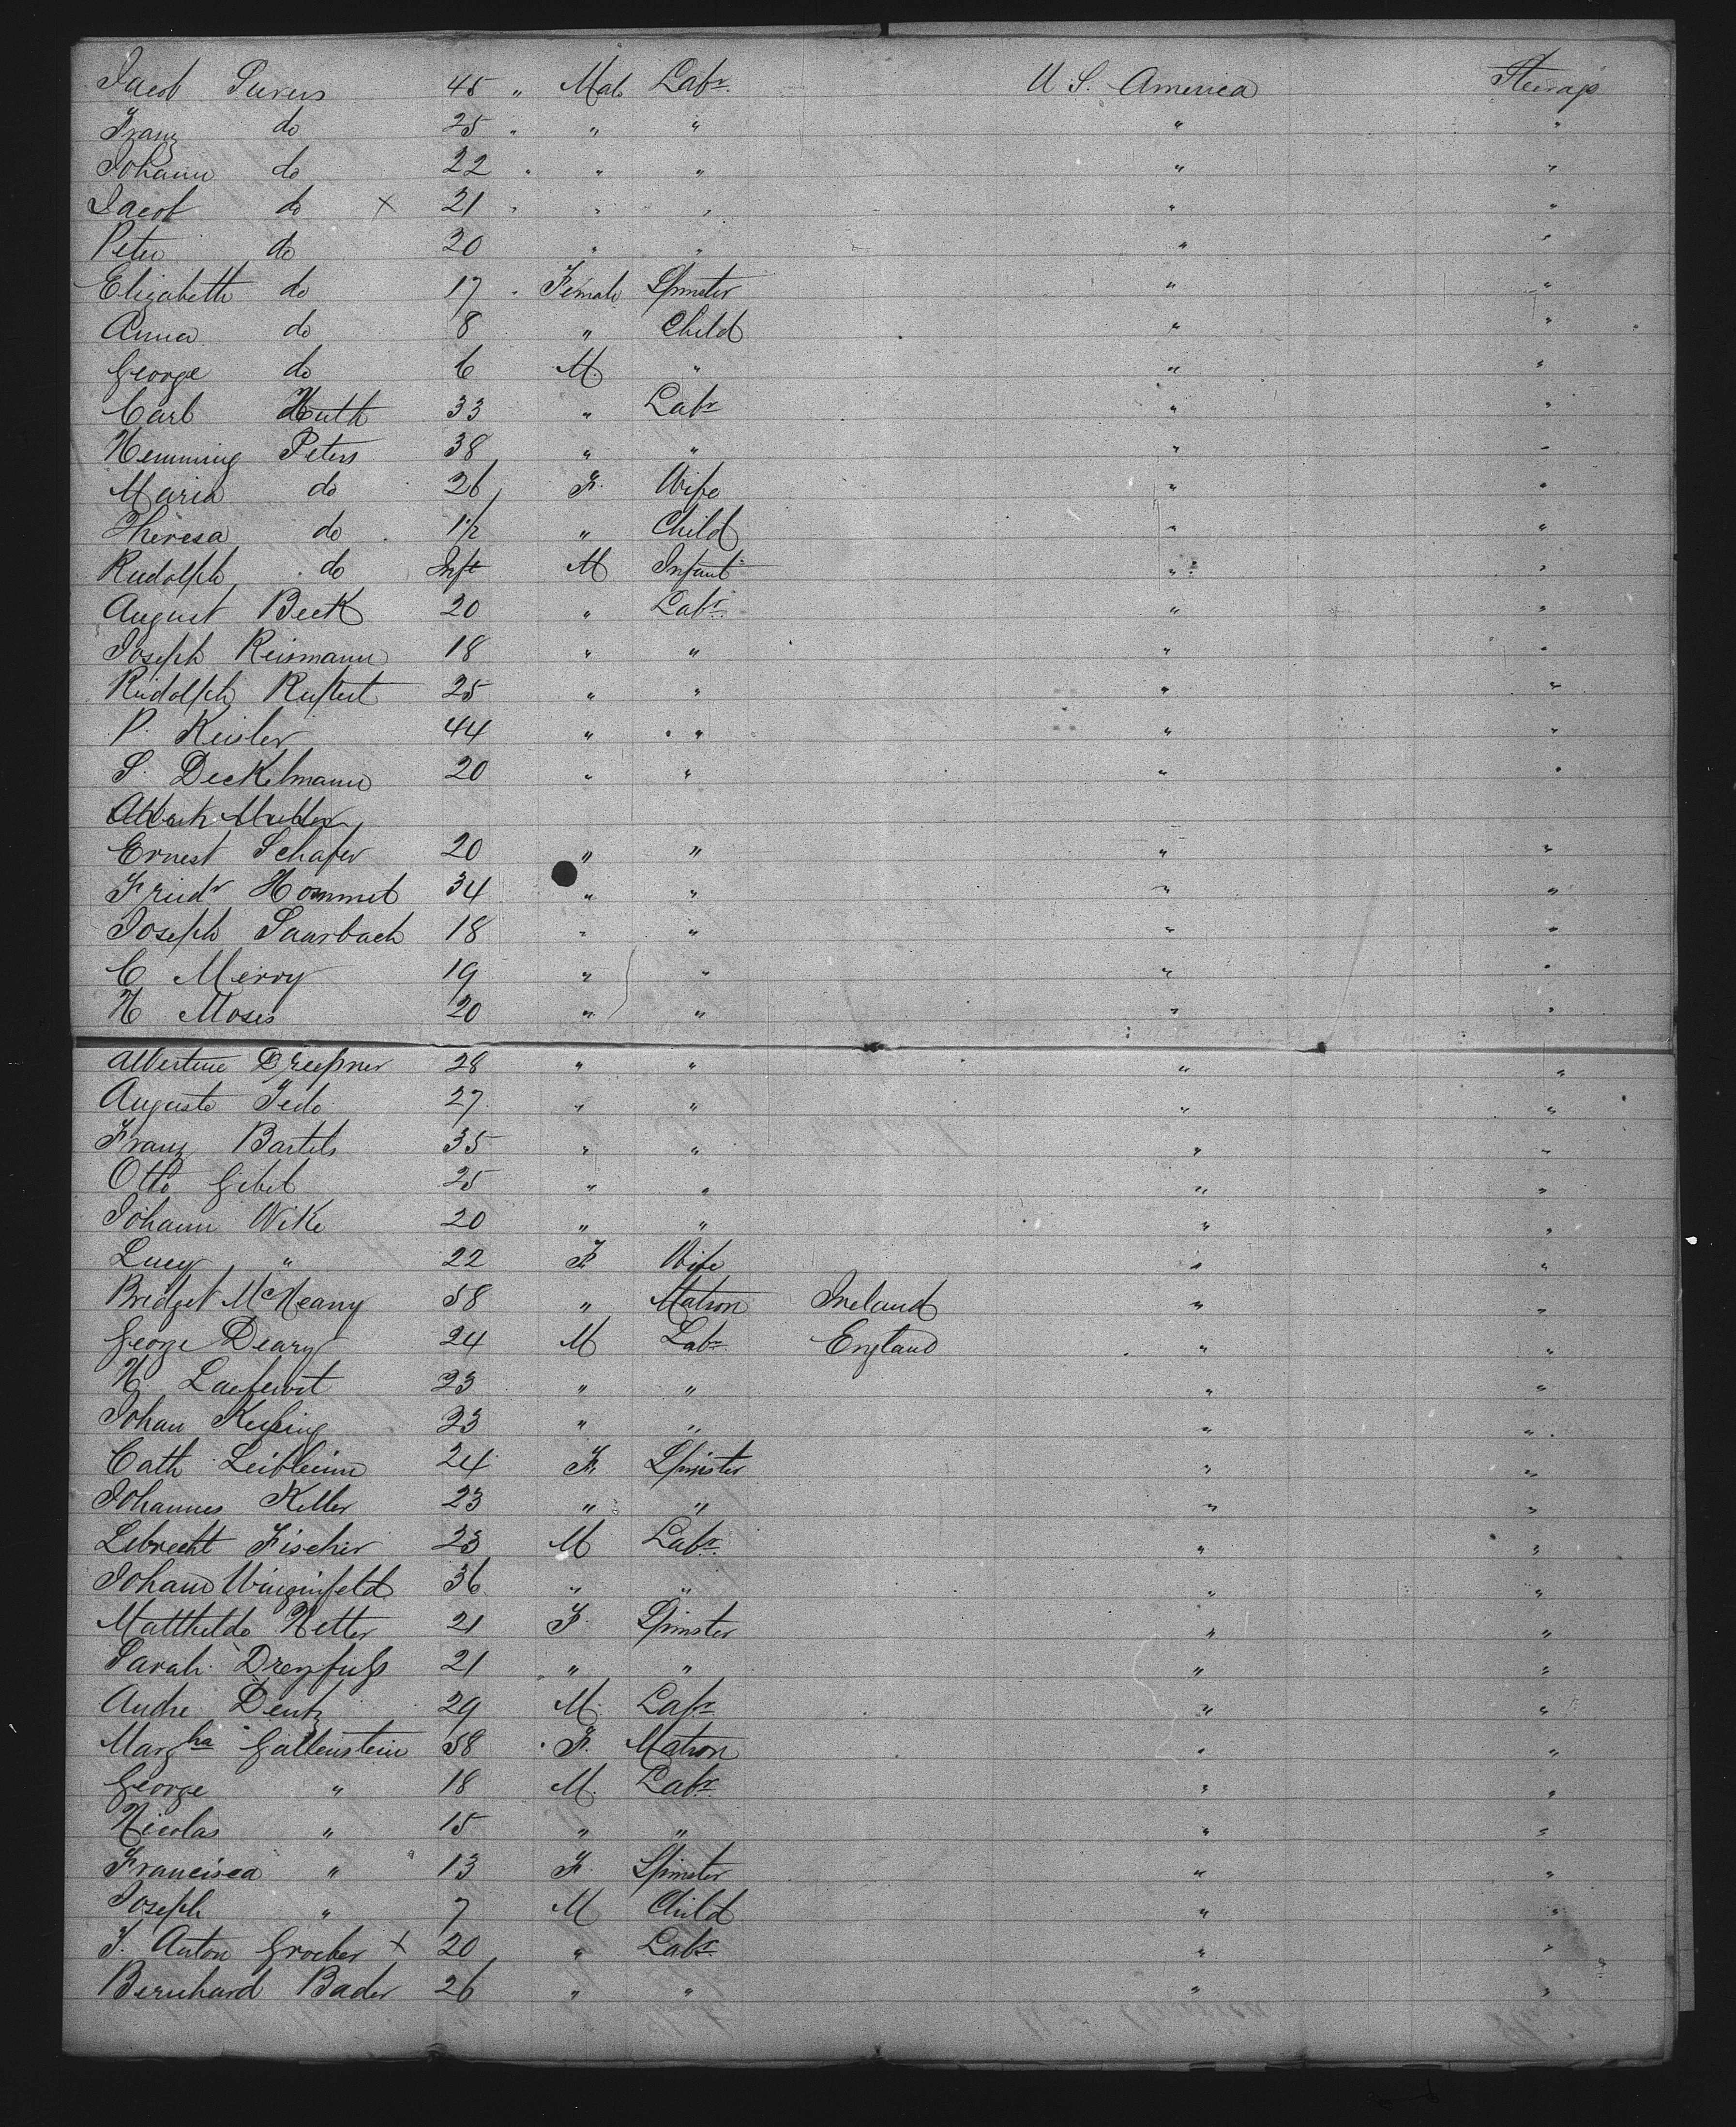 Jacob 45 " Male Labr. U S. America Steerage
Franz do 25 " " " " "
Johann do 22 " " " " "
Jacob do × 21 " " " " "
Peter do 20 " " " "
Elizabeth do 17 " Female Spinster " "
Anna do 8 " Child " "
George do 6 M. " " "
Carl Huth 33 " Labr " "
Hemming Peters 38 " " " "
Maria do 26 F. Wife " "
Theresa do 1½ " Child " "
Rudolph do Inft M Infant " "
August Beck 20 " Labr. " "
Joseph Reismann 18 " " " "
Rudolph 25 " " " "
P. Keisler 44 " " " "
S. Deckelmann 20 " " " "
Albert Muller
Ernest Schafer 20 " " " "
Friedr Hommel 34 " " " "
Joseph Saarbach 18 " " " "
C Merry 19 " " " "
H Moses 20 " " " "
Albertine 28 " " " "
Auguste 27 " " " "
Franz Bartels 35 " " " "
Otto Gibel 25 " " " "
Johann Wike 20 " " " "
Lucy " 22 F Wife " "
Bridget McNeany 58 " Matron Ireland " "
George Deary 24 M Labr England " "
H 23 " " " "
Johan 23 " " " "
Cath 24 F. Spinster " "
Johannes Keller 23 " " " "
Lebrecht Fischer 23 M Labr. " "
Johann 36 " " " "
Matthilde Netter 21 F. Spinster " "
Sarah Dreyfuss 21 " " " "
Andre Dentz 29 M. Labr " "
Margha Gallenstein 58 F. Matron " "
George " 18 M. Labr. " "
Nicolas " 15 " " " "
Francisca " 13 F. Spinster " "
Joseph " 7 M Child " "
J. Anton Grocher × 20 " Labr. " "
Bernhard Bader 26 " " " "